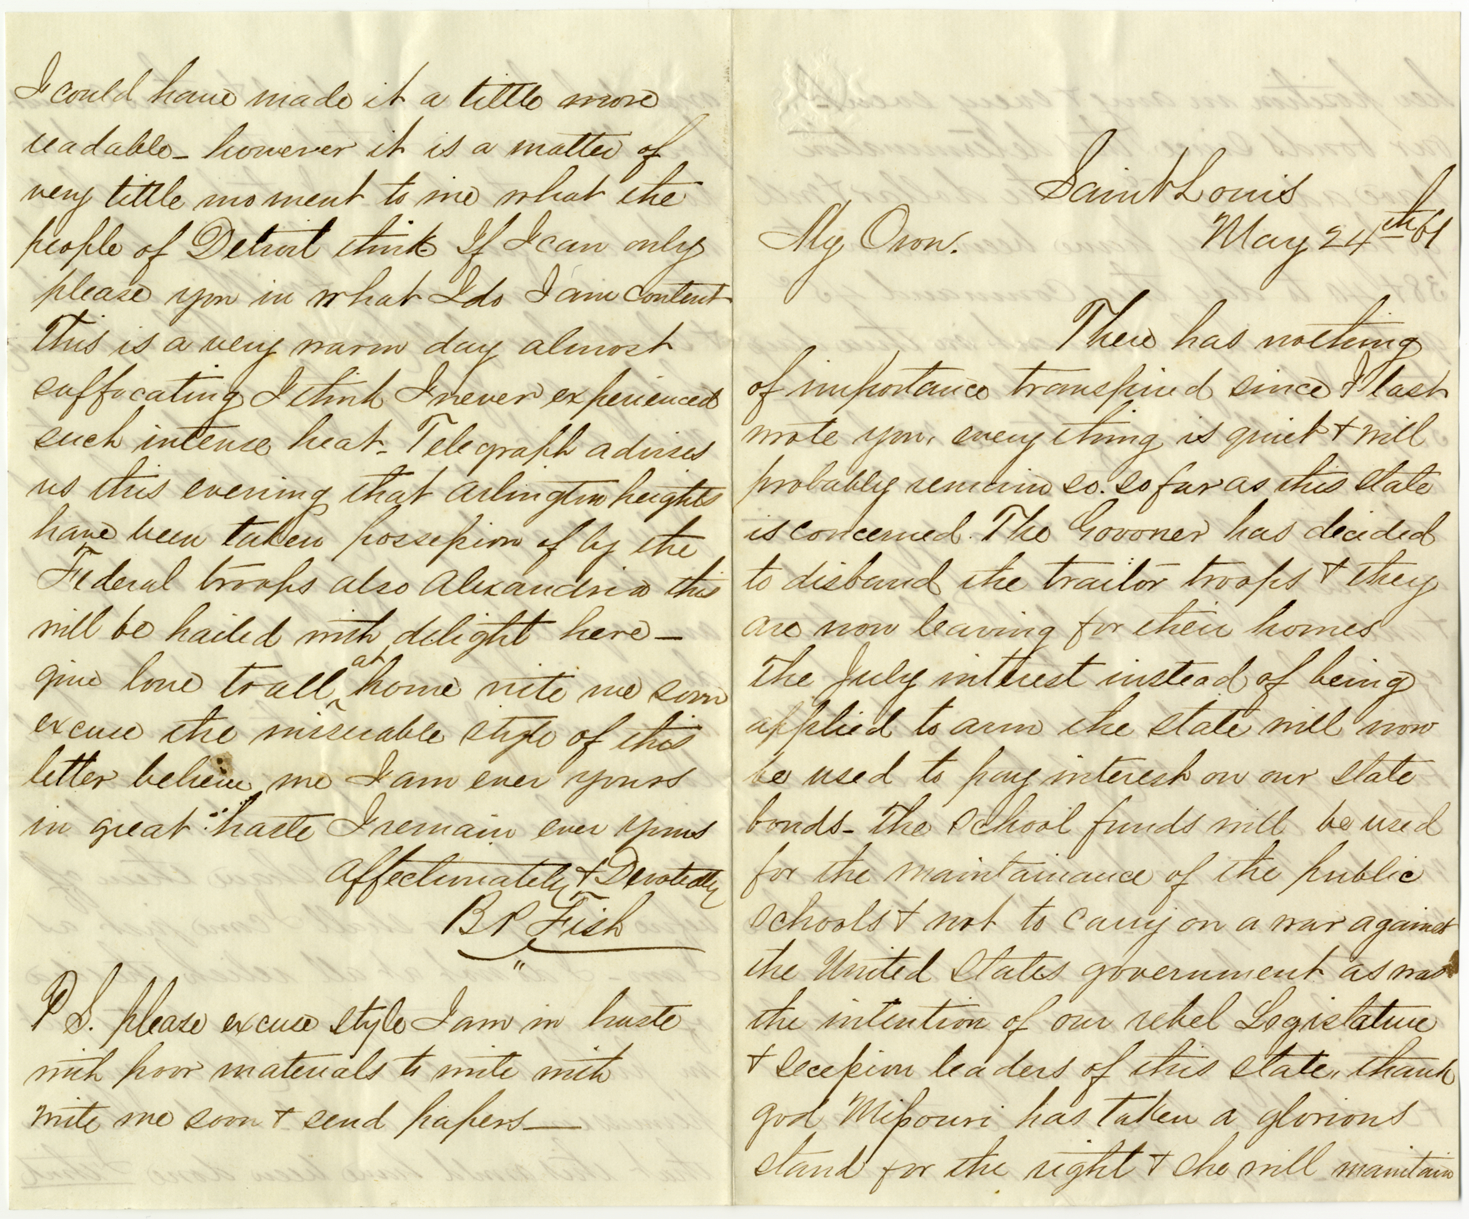 Saint Louis
My Own. May 24th 61
There has nothing
of importance transpired since I last
wrote you, everything is quiet & will
probably remain so. so far as this State
is concerned. The Govoner has decided
to disband the traitor troops & they
are now leaving for their homes
The July interest instead of being
applied to arm the State will now
be used to pay interest on our State
bonds- The School funds will be used
for the maintainance of the public
Schools & not to carry on a war against
the United States government as was
the intention of our rebel Legislature
& Secession leaders of this State, thank
god Missouri has taken a glorious
stand for the right & She will maintain
I could have made it a little more
readable- however it is a matter of
very little moment to me what the
people of Detroit think If I can only
please you in what I do I am Content
This is a very warm day almost
suffocating I think I never experienced
such intense heat- Telegraph advises
us this evening that Arlington heights
have been taken possession of by the
Federal troops also Alexandria this
will be hailed with delight here-
give love to all at home write me soon
excuse the miserable style of this
letter believe me I am ever yours
in great haste I remain ever yours
Affectionately & Devotedly
B P Fish
P S. please excuse style I am in haste
with poor materials to write with
Write me soon & send papers-